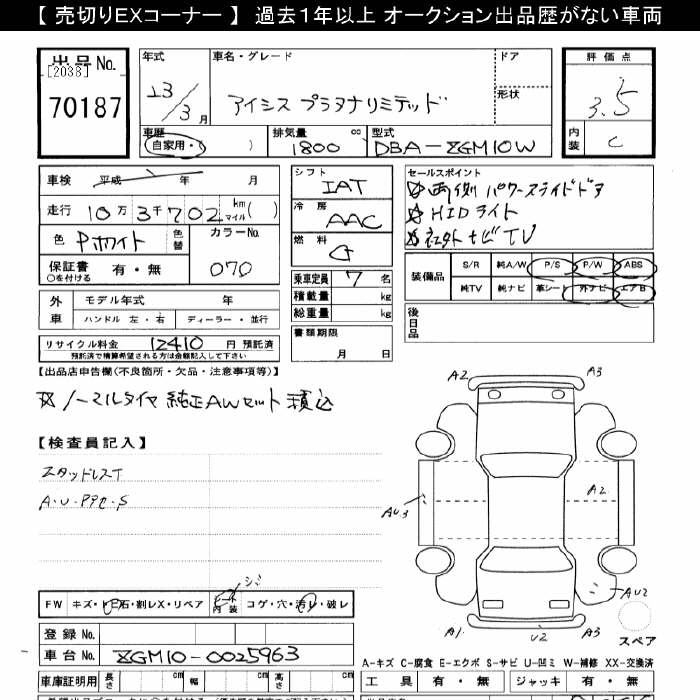 【 売切りEXコーナー 】 過去1年以上 オークション出品歴がない車両
出品No.
[2038]
70187
年式
13/3月
車名・グレード
アイシス プラタナリミテッド
ドア
形状
評価点
3.5
内装
C
車歴
自家用・( )
排気量
1800 cc
型式
DBA-ZGM10W
車検 平成 年 月
走行 10万3千702 km マイル( )
色 Pホワイト 色替
カラーNo. 070
保証書 有・無
○を付ける
シフト
IAT
冷房
AAC
燃料
G
乗車定員 7名
積載量 kg
総重量 kg
書類期限
月 日
セールスポイント
両側パワースライドドア
HIDライト
社外ナビTV
装備品
S/R 純A/W P/S P/W ABS
純TV 純ナビ 革シート 外ナビ エアB
後日品
外車
モデル年式 年
ハンドル 左・右 ディーラー・並行
リサイクル料金 12410 円 預託済
預託済で精算希望される方は金額記入して下さい
【出品店申告欄(不良箇所・欠品・注意事項等)】
ノーマルタイヤ 純正AWセット 積込
【検査員記入】
スタッドレスT
A・U・Pアセ・S
A2
A3
AU3
A2
AU2
A1
U2
A3
スペア
シミ
FW キズ・トビ石・割レX・リペア
内装 コゲ・穴・汚レ・破レ
登録No.
車台No. ZGM10-0025963
A-キズ C-腐食 E-エクボ S-サビ U-凹ミ W-補修 XX-交換済
車庫証明用 長さ cm 幅 cm 高さ cm
工具 有・無 ジャッキ 有・無